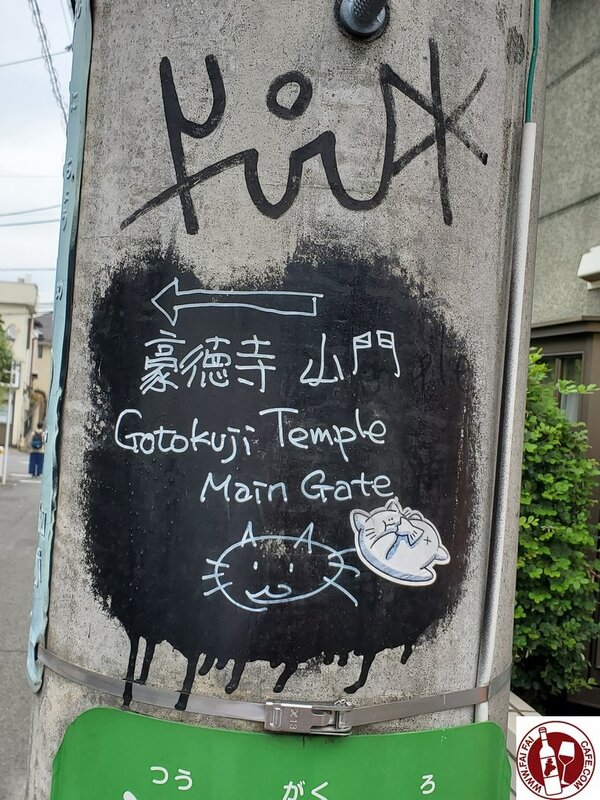 豪徳寺 山門
Gotokuji Temple
Main Gate
つう がく ろ
WWW.FAI FAI CAFE.COM